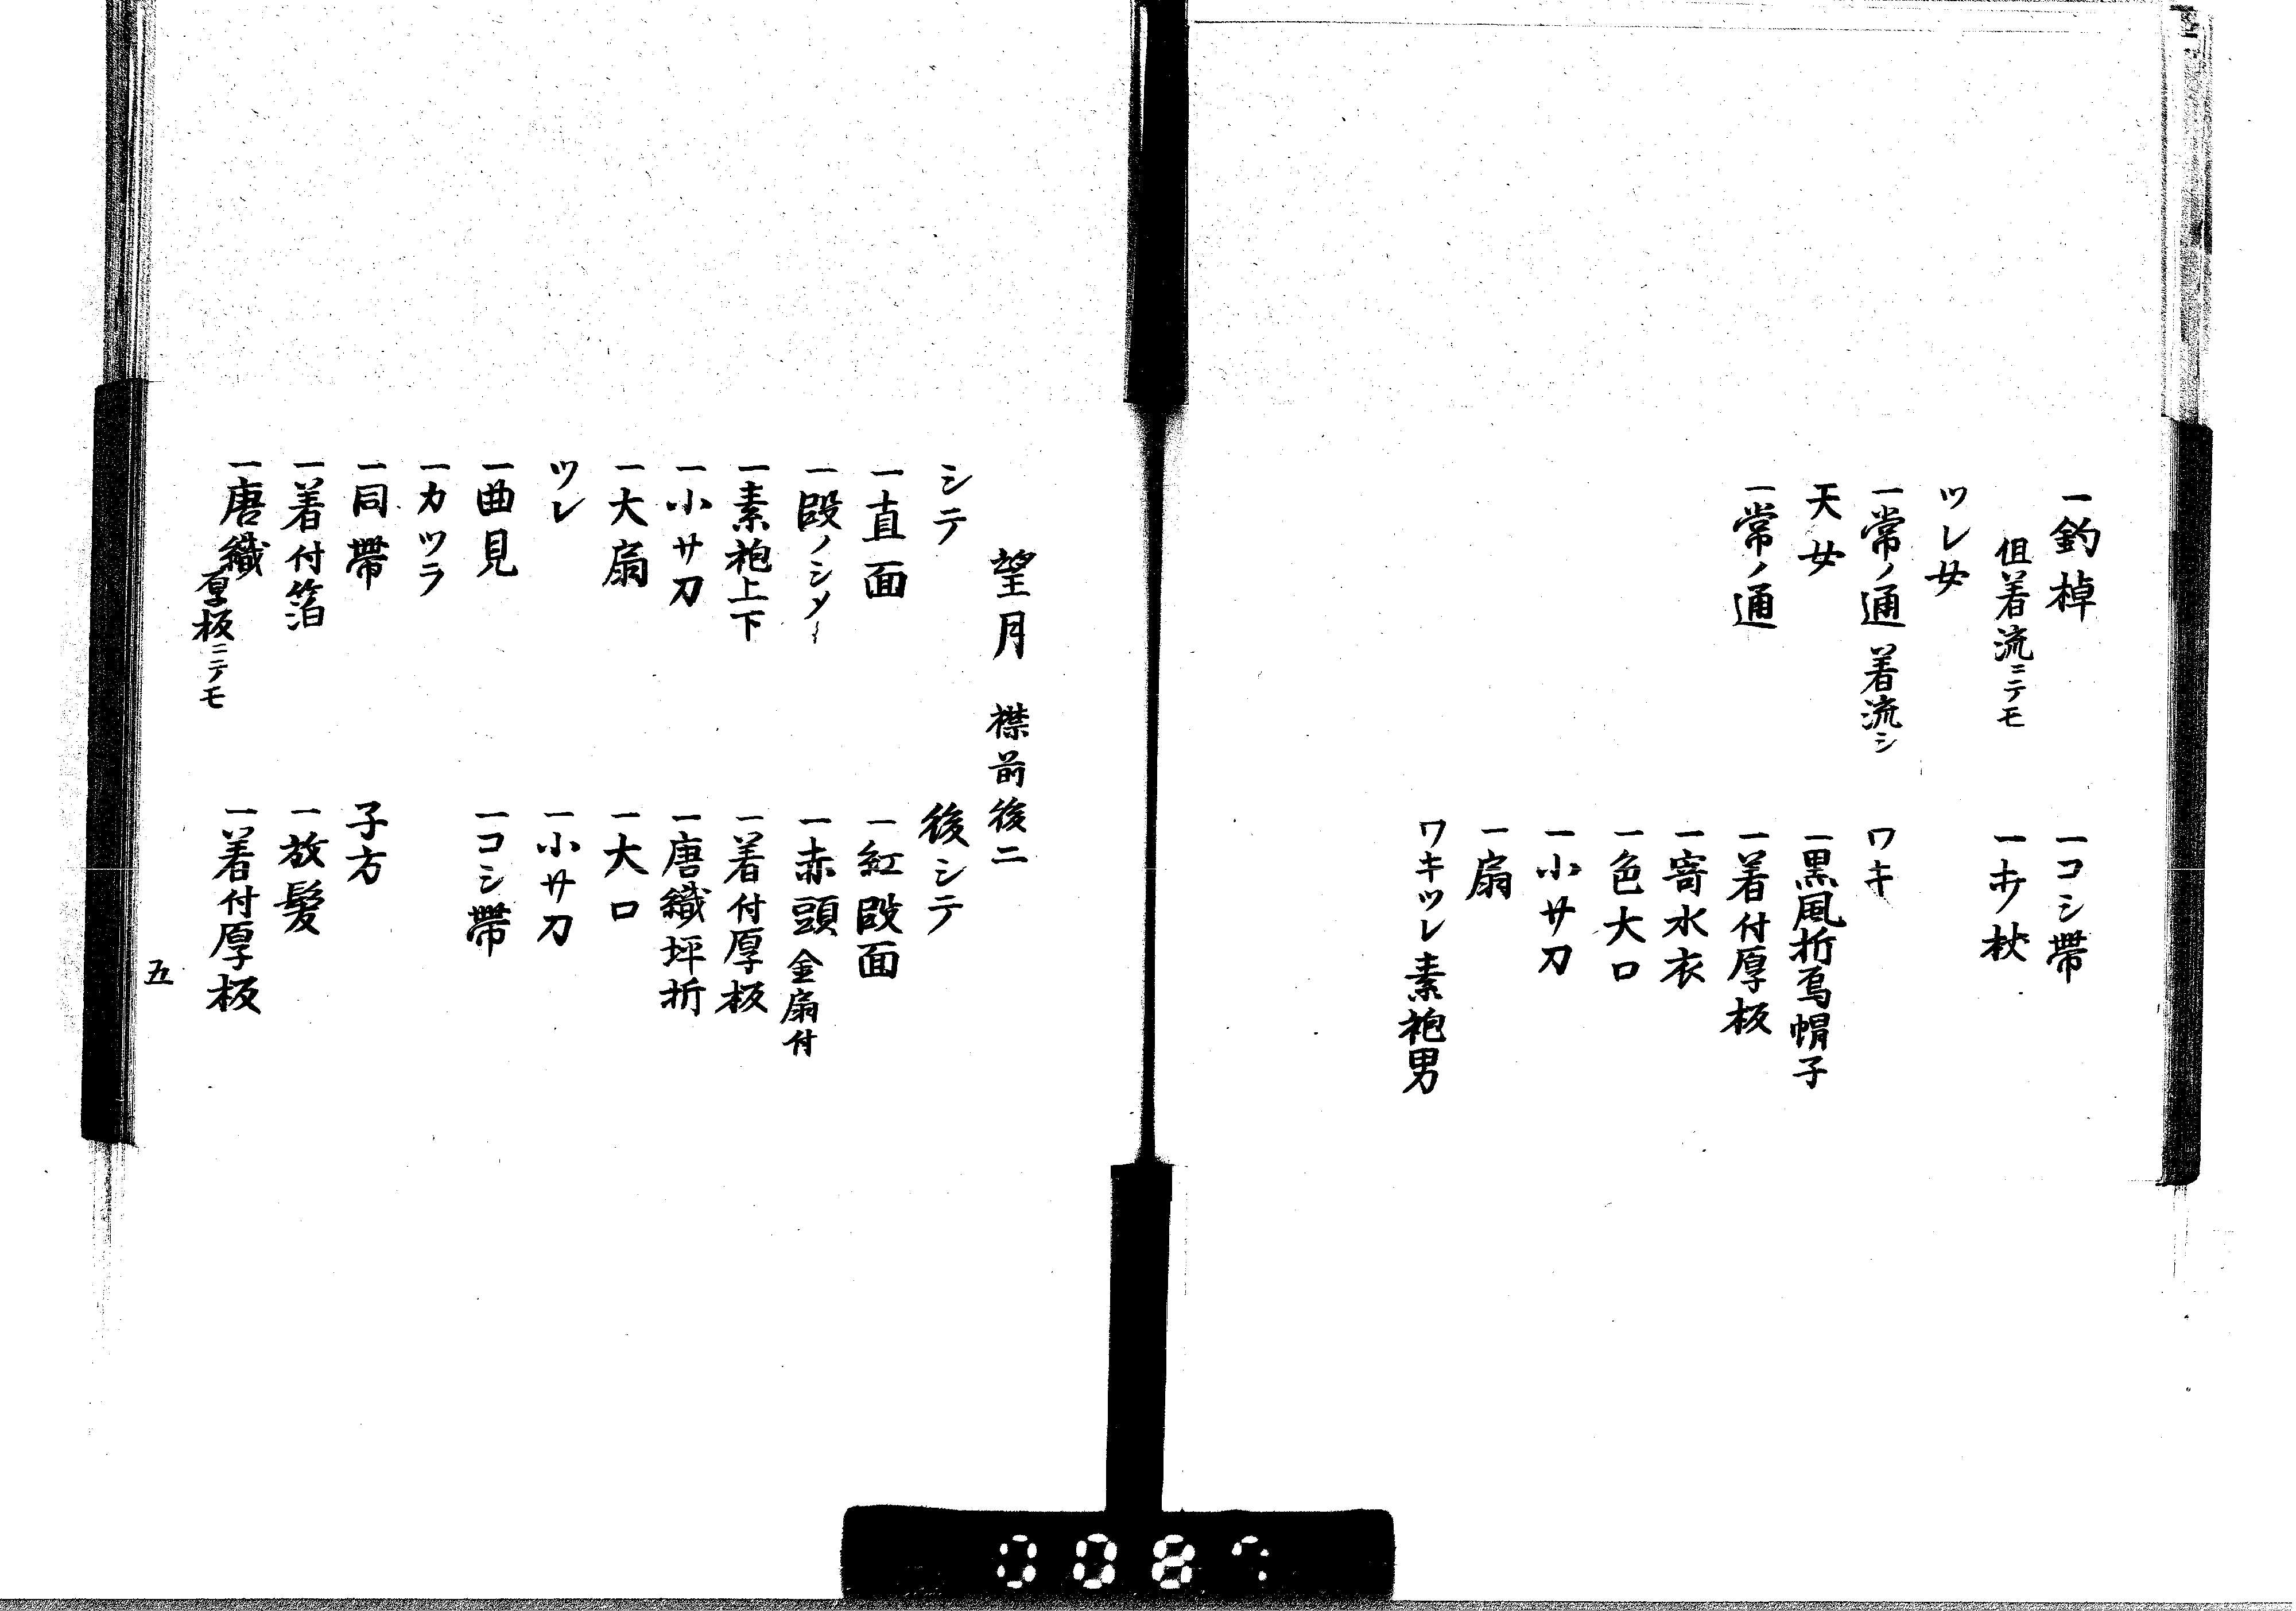 一釣棹
但着流ニテモ
ツレ女
一常ノ通 着流シ
天女
一常ノ通
一コシ帯
一サ杖
ワキ
一黒風折烏帽子
一着付厚板
一寄水衣
一色大口
一小サ刀
一扇
ワキツレ素袍男
望月 襟前後二
シテ
一直面
一段ノシメ
一素袍上下
一小サ刀
一大扇
ツレ
一曲見
一カツラ
一同帯
一着付箔
一唐織
厚板ニテモ
後シテ
一紅段面
一赤頭 金扇付
一着付厚板
一唐織坪折
一大口
一小サ刀
一コシ帯
子方
一放髪
一着付厚板
五
0087